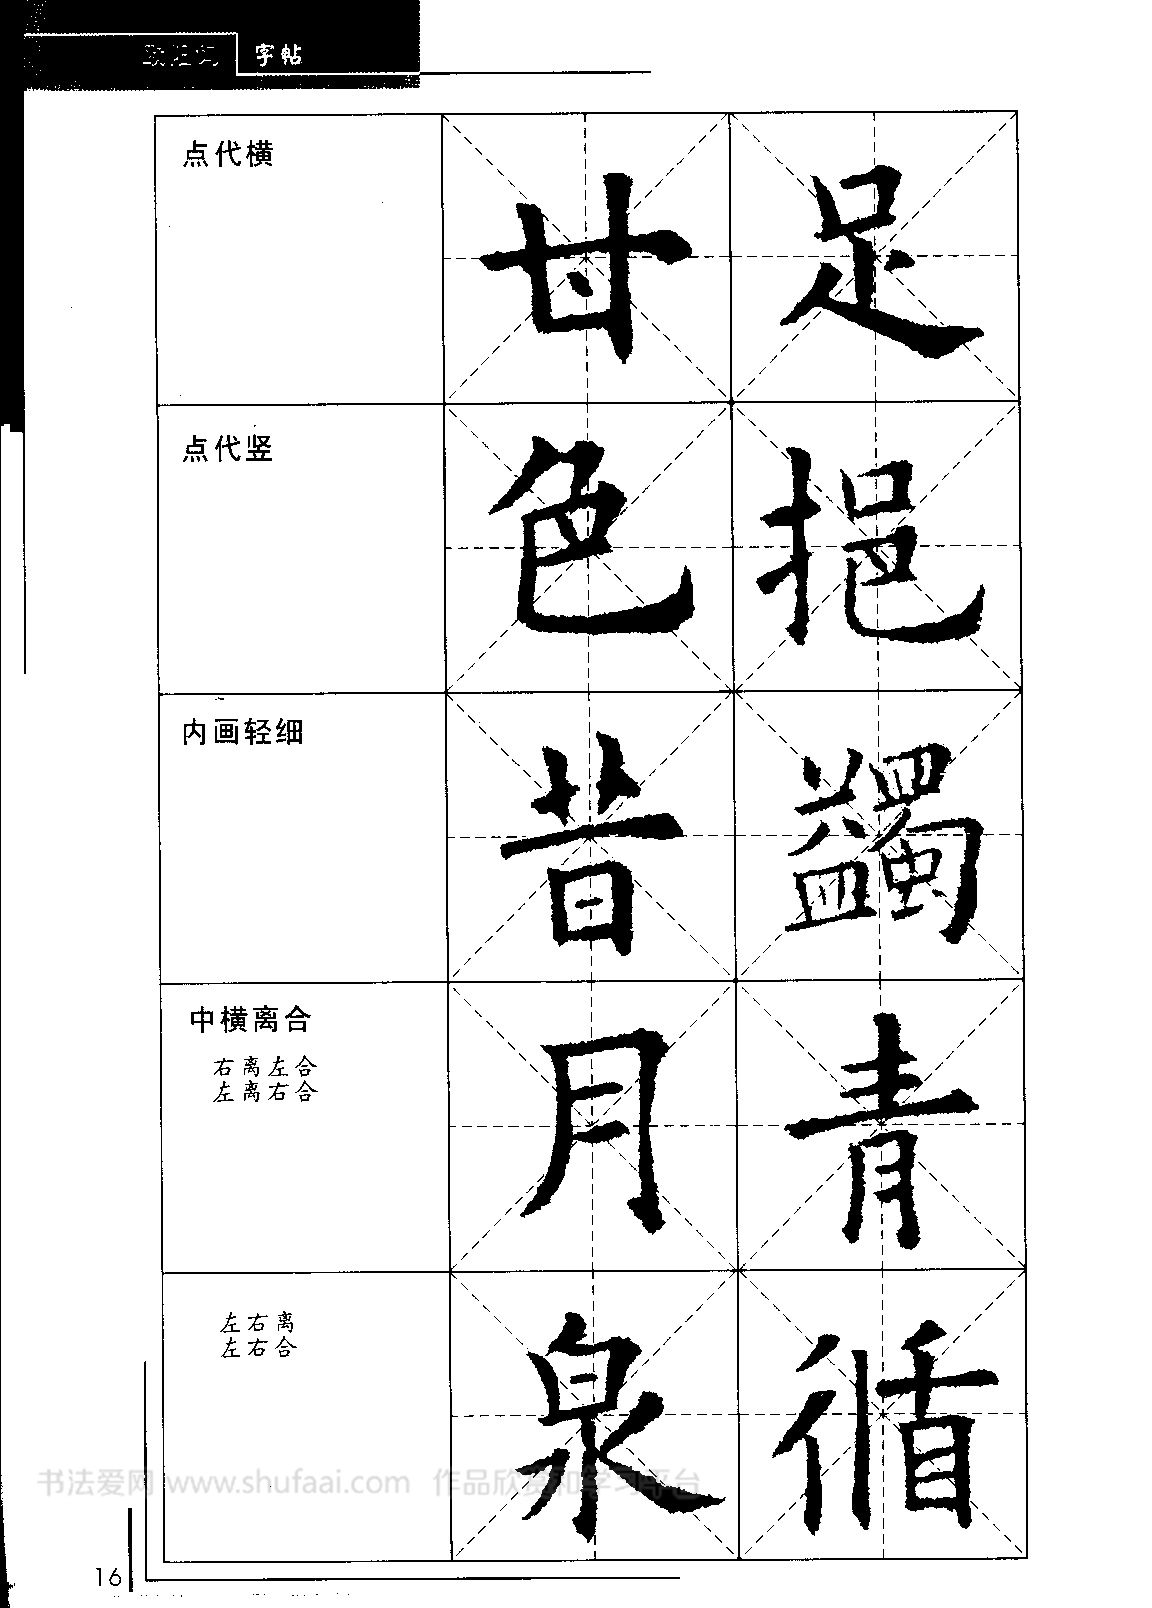 欧阳询 字帖
点代横
甘 足
点代竖
色 挹
内画轻细
昔 蠲
中横离合
右离左合
左离右合
月 青
左右离
左右合
泉 循
书法爱网 www.shufaai.com 作品欣赏和学习平台
16